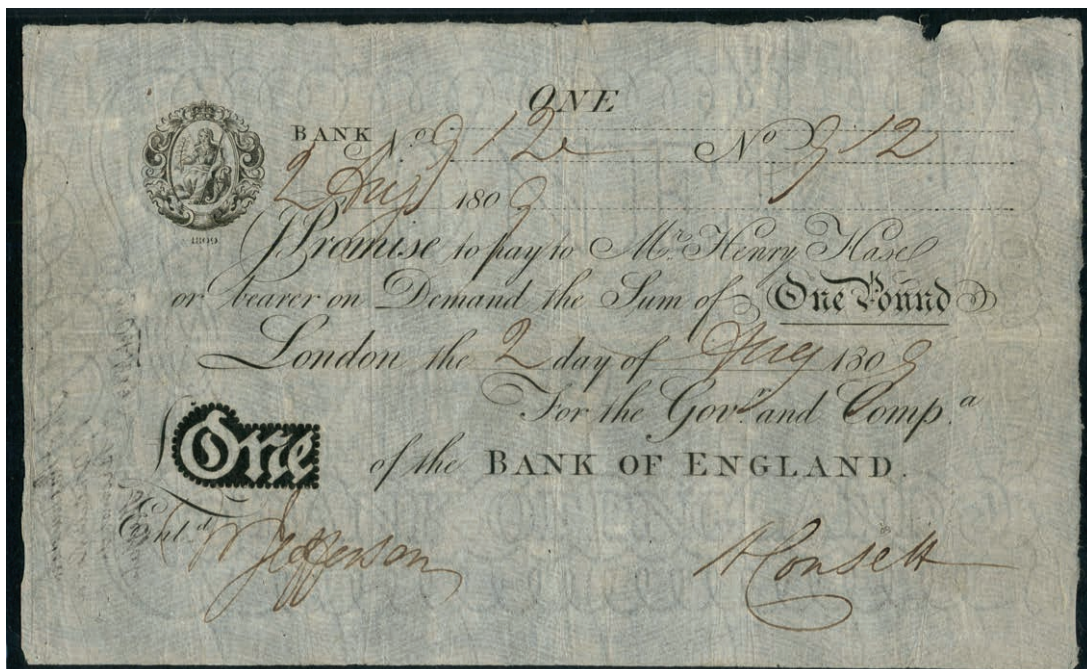 ONE
BANK No 912 No 912
2 Augt 1809
1809
I Promise to pay to Mr. Henry Hase
or bearer on Demand the Sum of One Pound
London the 2 day of Aug 1809
For the Govr. and Compa.
£One of the BANK OF ENGLAND.
Entd. W Jefferson A Consett